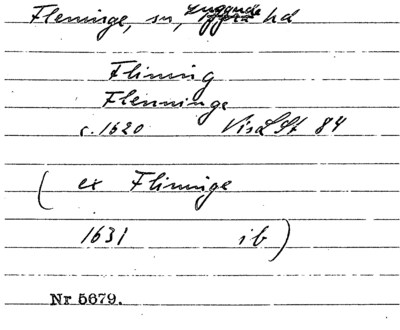 Fleninge, sn, Luggude hd
Flining
Flenninge
c. 1620 VisLSt 84
(ex Flininge
1631 ib)
Nr 5679.